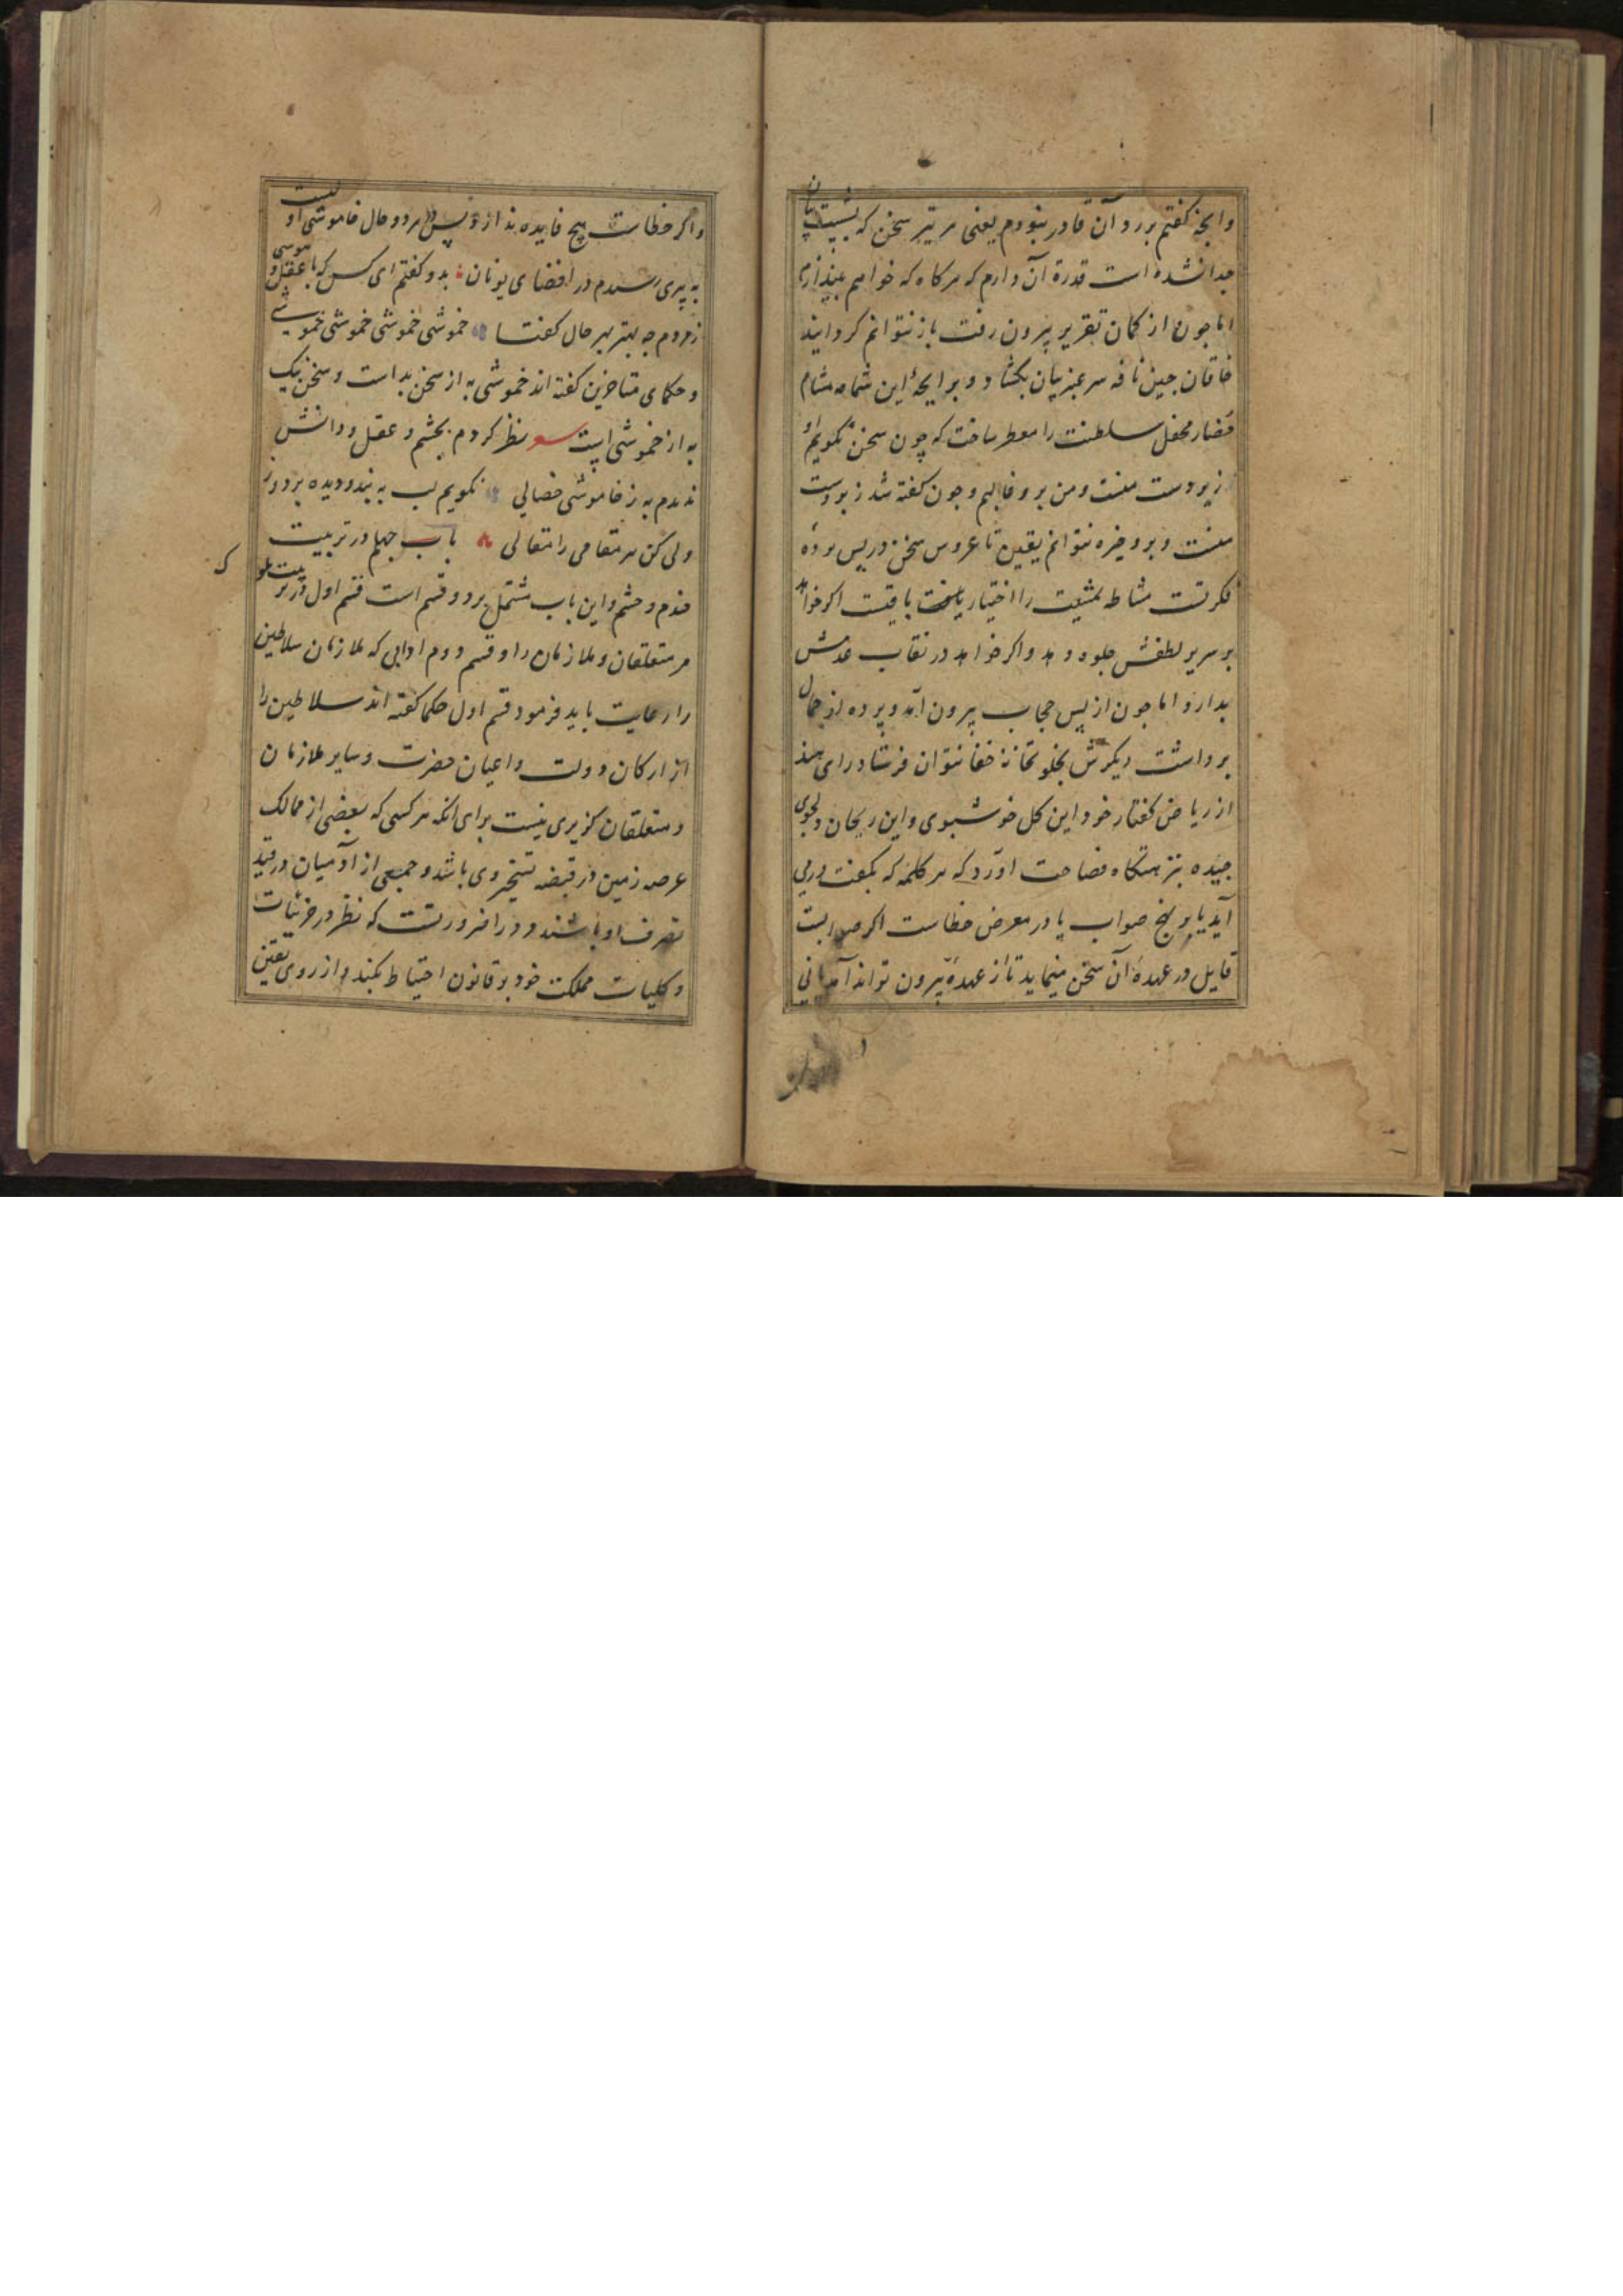 وانچه نکفتم بر رد آن قادر نبودم یعنی هر تیر سخن که بشست بیان
جدا نشده است قدرة آن دارم که هر کاه که خواهم بیندازم
اما جون از کمان تقریر بیرون رفت باز نتوانم کردانید
خاقان جین نافه سر عنبر بیان بکشاد و برایحۀ این شمامه مشام
حضار محفل سلطنت را معطر ساخت که چون سخن نکویم او
زیردست منست و من برو غالبم و جون کفته شد زبردست
منست و برو غیره نتوانم یقین تا عروس سخن در پس پرده
فکرتست مشاطه مشیت را اختیار باقیست اکر خواهد
بر سریر لطفش جلوه دهد و اکر خواهد در نقاب عدمش
بدارد اما جون از پس حجاب بیرون آمد و پرده از جمال
برداشت دیکرش بخلوتخانۀ خفا نتوان فرستاد رای هند
از ریاض کفتار خود این کل خوشبوی و این ریحان دلجوی
جیده بنزهتکاه فصاحت اورد که هر کلمه که بکفت درمی
آید یا بر نهج صواب یا در معرض خطاست اکر صوابست
قایل در عهدۀ آن سخن میماید تا از عهدۀ بیرون تواند آمد یا نی
واکر خطاست هیچ فایده ندارد پس در هر دو حال خاموشی اولیست
به پیری رسیدم در اقضای یونان بدو کفتم ای کس که با عقل و هوشی
ز مردم چه بهتر بهر حال کفتا خموشی خموشی خموشی خموشی
و حکمای متاخرین کفته اند خموشی به از سخن بد است و سخن نیک
به از خموشی است نظر کردم بچشم و عقل و دانش
ندیدم به ز خاموشی خصالی نکویم لب به بند و دیده بردوز
ولی کن هر مقامی را مقالی باب جهارم در تربیت
خدم و حشم و این باب مشتمل بر دو قسم است قسم اول در تربیت ملوک
مر متعلقان و ملازمان را و قسم دوم ادابی که ملازمان سلاطین
را رعایت باید فرمود قسم اول حکما کفته اند سلاطین را
از ارکان دولت و اعیان حضرت و سایر ملازمان
و متعلقان کزیری نیست برای انکه هر کسی که بعضی از ممالک
عرصه زمین در قبضه تسخیر وی باشد و جمعی از آدمیان در قید
تصرف او باشند و درا ضرورتست که نظر در جزئیات
و کلیات مملکت خود بر قانون احتیاط بکند و از روی یقین